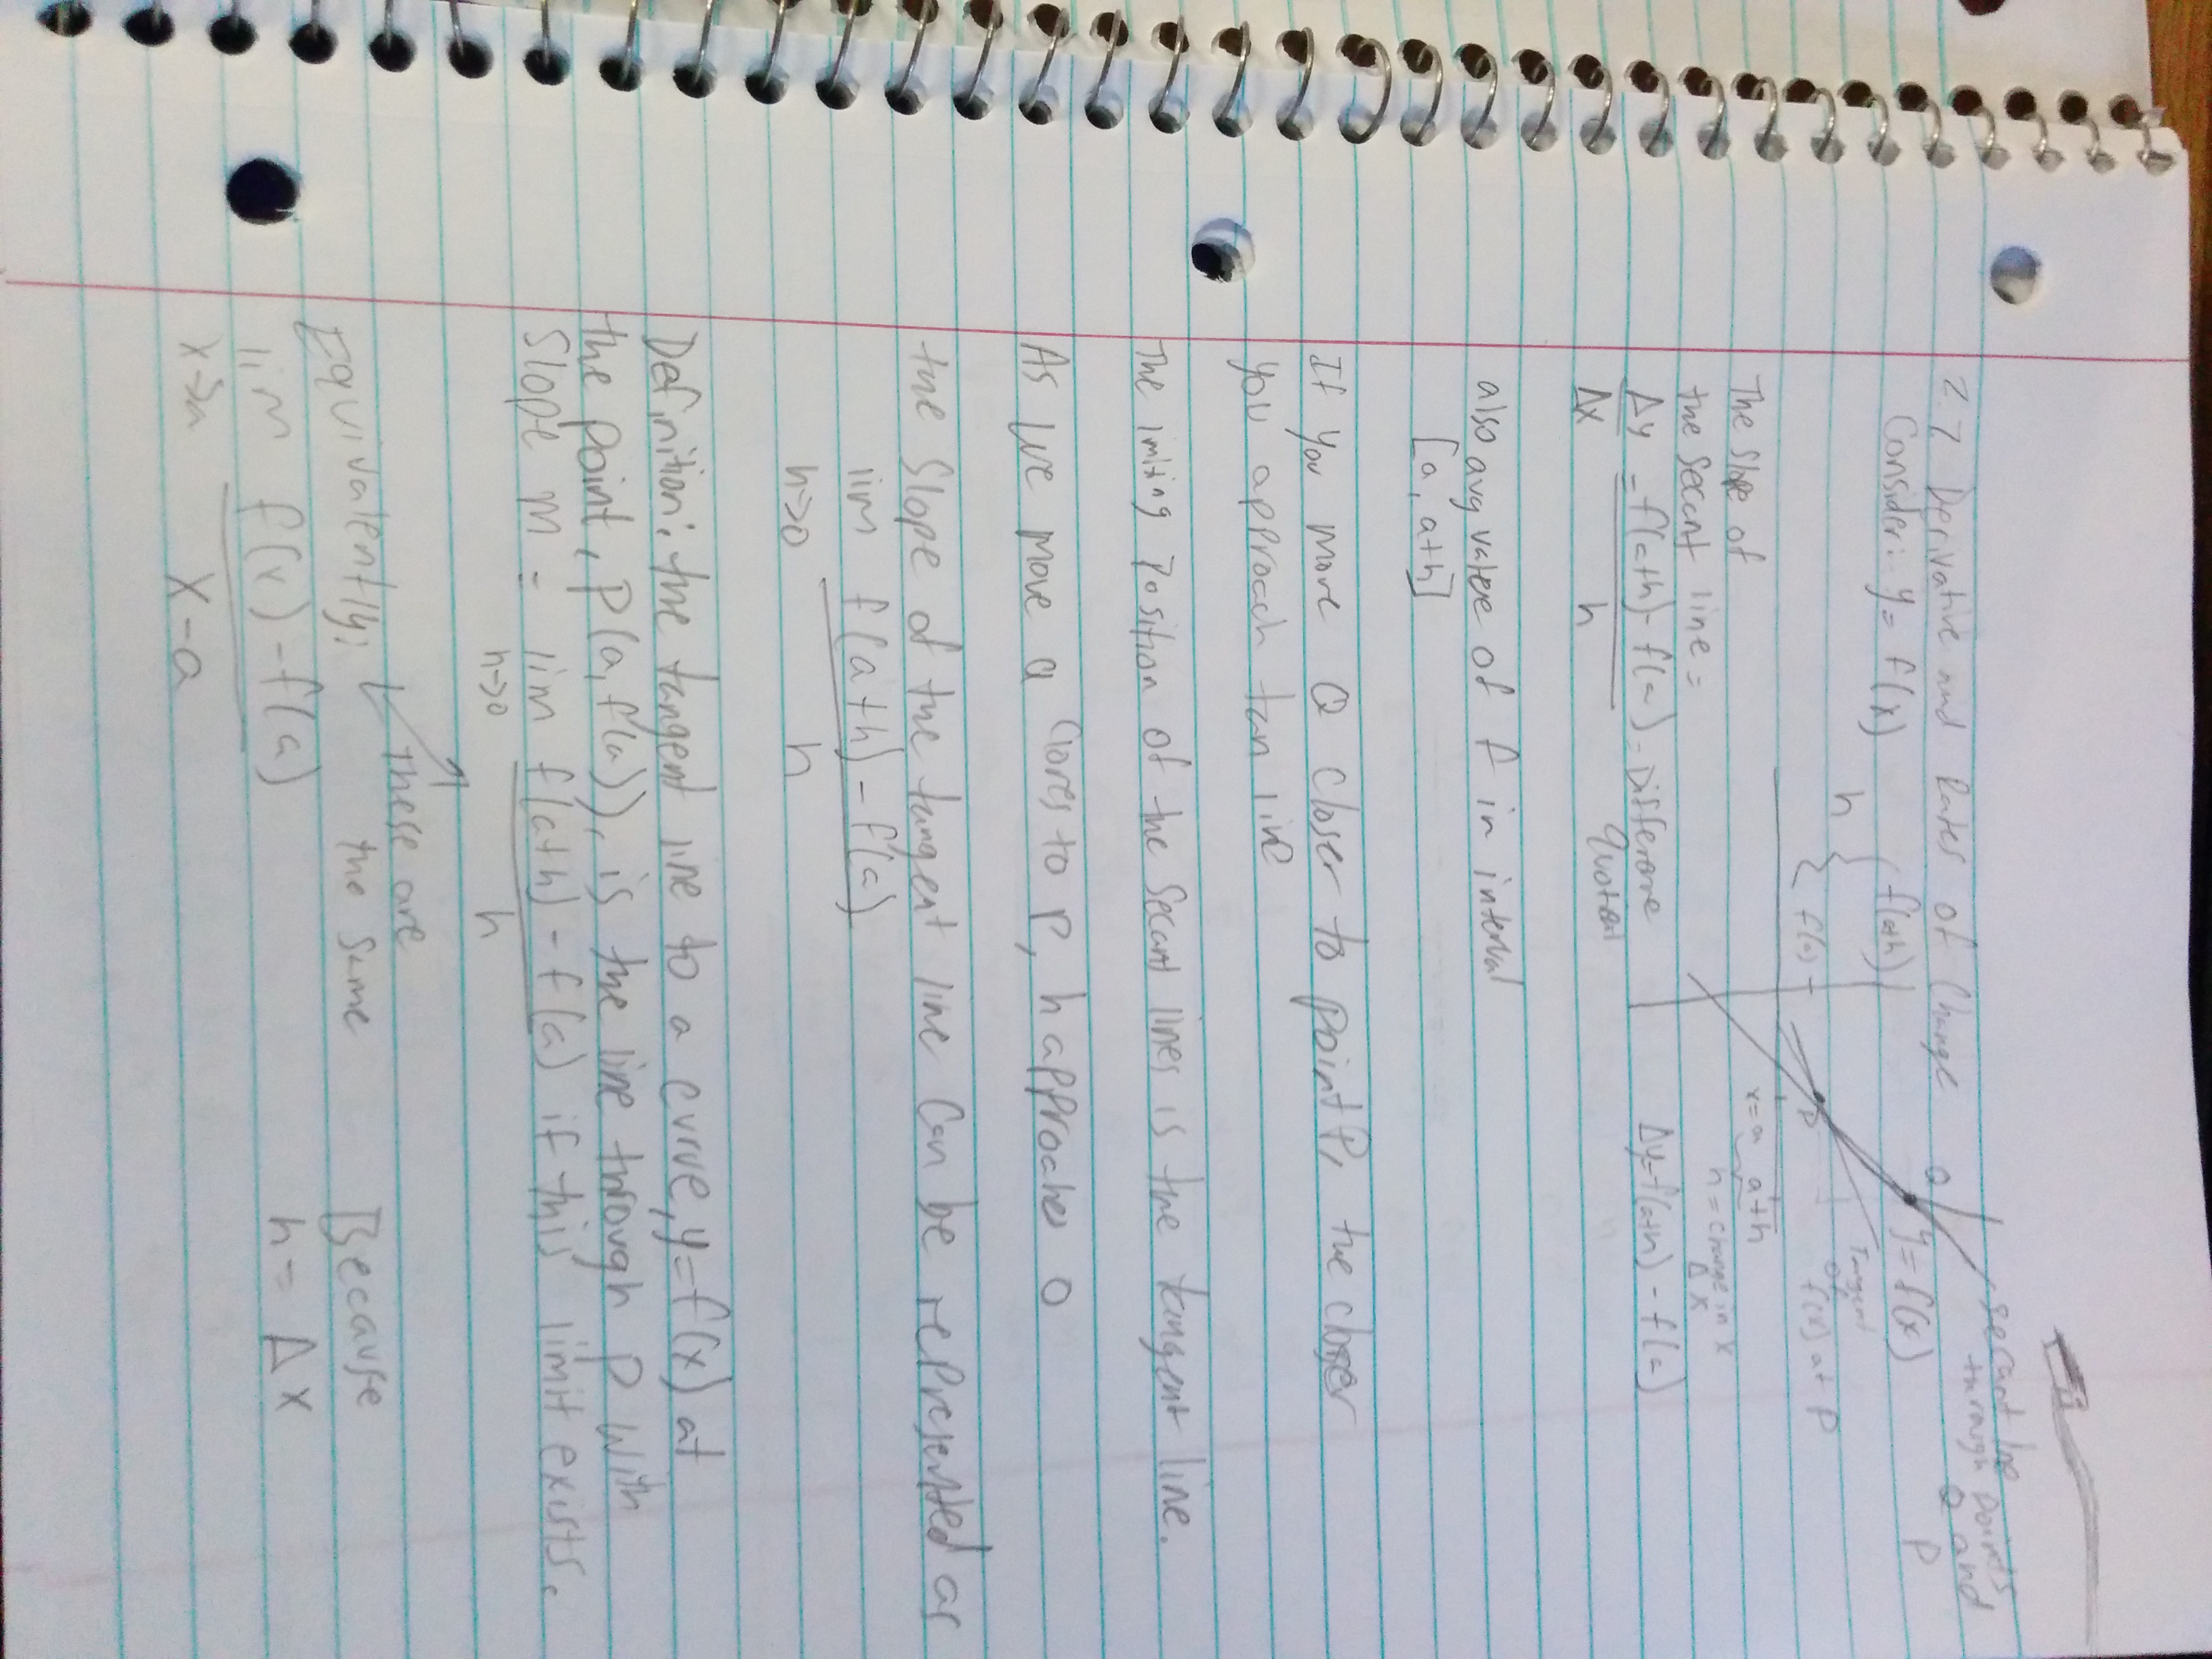 2.7 Derivative and Rates of Change
Consider: y = f(x)
h { ( f(a+h) )
{ f(a)
Q
P
y = f(x)
secant line
through points
Q and
P
Tangent
of
f(x) at P
x=a a+h
h = change in x
Δx
The slope of
the secant line =
Δy = f(a+h) - f(a) = Difference
Δx h
Δy = f(a+h) - f(a)
also avg value of f in interval
[a, a+h]
If you move Q closer to point P, the closer
you approach tan line
The limiting Position of the Secant lines is the tangent line.
As we move Q clores to P, h approaches 0
the slope of the tangent line can be represented as
lim f(a+h) - f(a)
h->0 h
Definition: the tangent line to a curve, y=f(x) at
the point, P(a, f(a)), is the line through P with
Slope m = lim f(a+h) - f(a) if this limit exists.
h->0 h
Equivalently; these are
the same
lim f(x) - f(a)
x->a x-a
Because
h = Δx